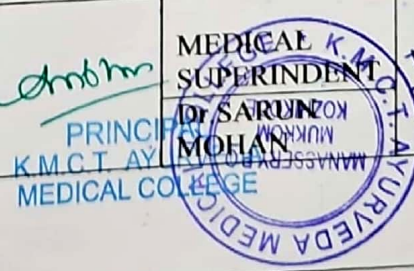 MEDICAL
SUPERINDENT
Dr SARUN
MOHAN
PRINCIPAL
K.M.C.T. AY
MEDICAL COLLEGE
K.M.C.T AYURVEDA MEDICAL COLLEGE
MANASSERY
MUKKOM